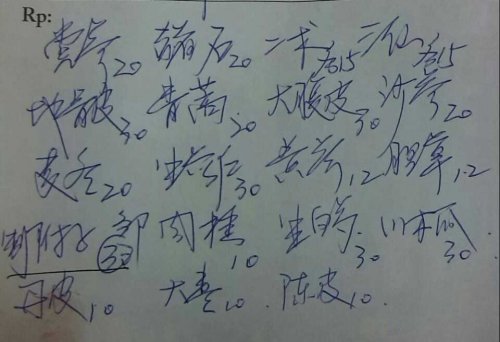 Rp:
党参20 赭石20 二术各15 二仙各15
地骨皮30 青蒿20 大腹皮30 沙参20
麦冬20 30 黄芩12 胆草12
附子30 肉桂10 生白芍30 川木瓜30
丹皮10 大枣10 陈皮10